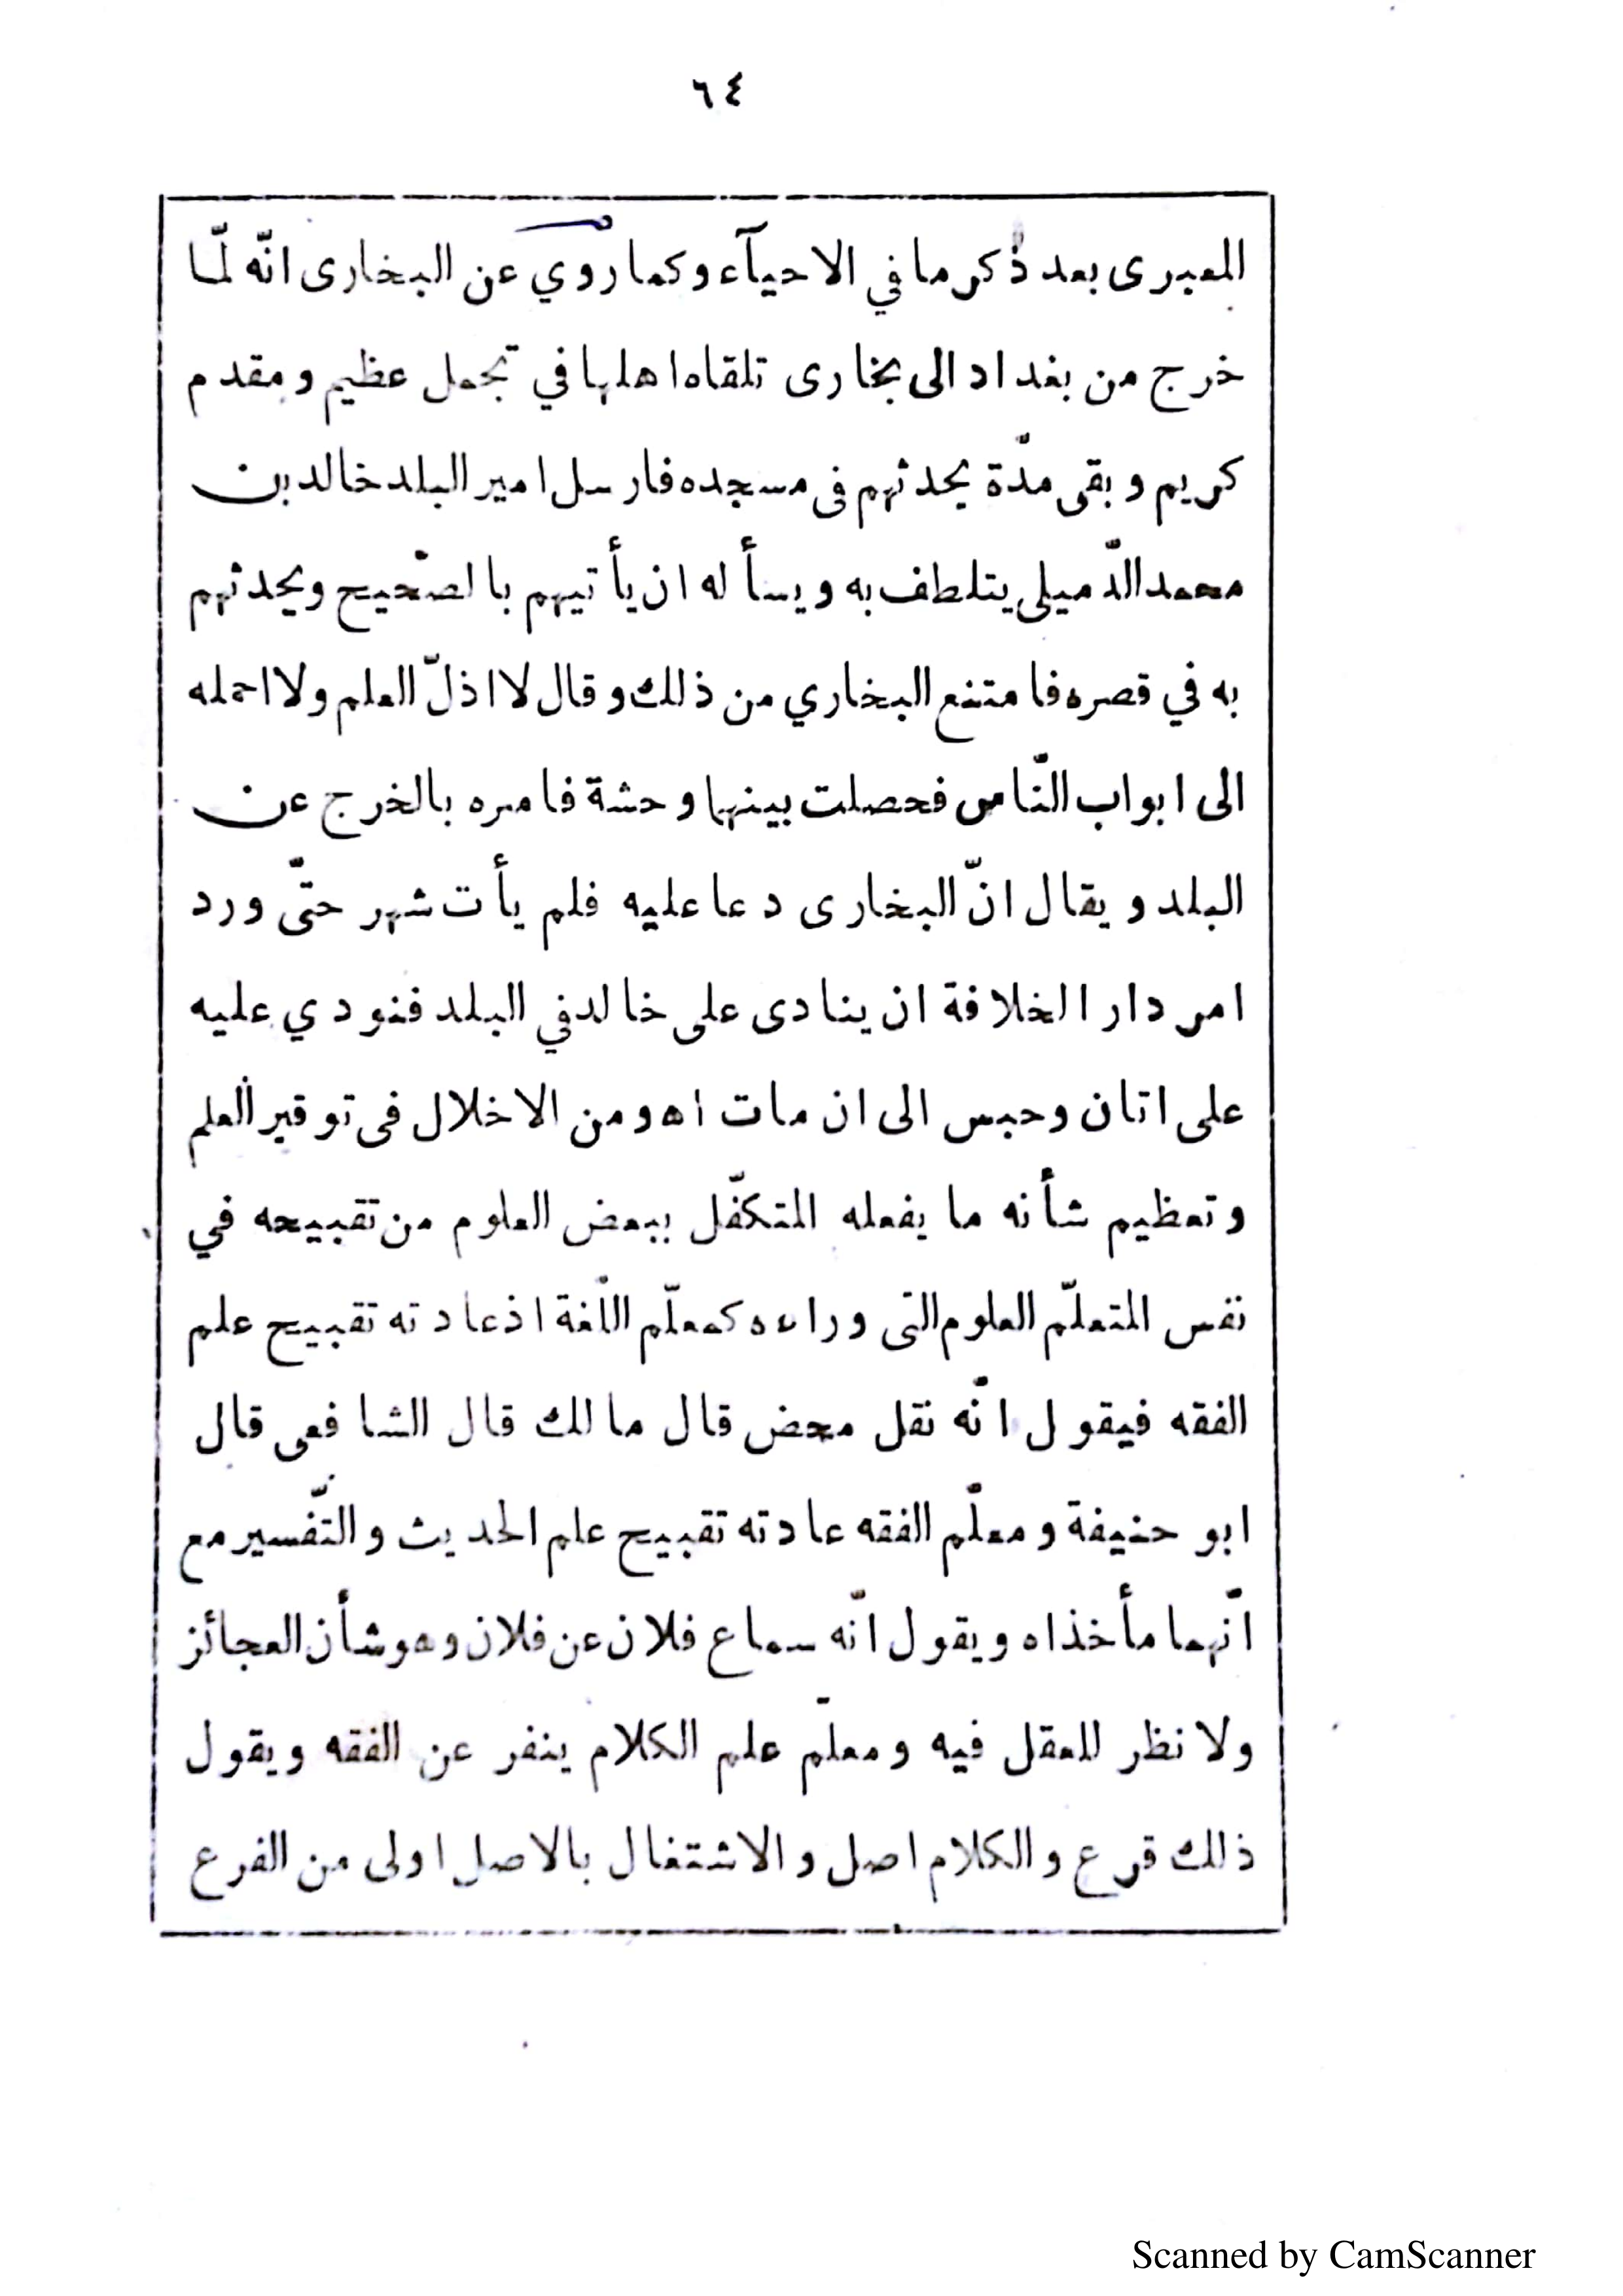 ٦٤
المعبرى بعد ذكر ما في الاحيآء وكما روي عن البخارى انّه لمّا
خرج من بغداد الى بخارى تلقاه اهلها في تجمل عظيم ومقدم
كريم وبقى مدّة يحدثهم فى مسجده فارسل امير البلد خالد بن
محمد الدّميلى يتلطف به ويسأله ان يأتيهم بالصّحيح ويحدثهم
به في قصره فامتنع البخاري من ذلك وقال لا اذلّ العلم ولا احمله
الى ابواب النّاس فحصلت بينهما وحشة فامره بالخرج عن
البلد ويقال انّ البخارى دعا عليه فلم يأت شهر حتّى ورد
امر دار الخلافة ان ينادى على خالد في البلد فنودي عليه
على اتان وحبس الى ان مات اه ومن الاخلال فى توقير العلم
وتعظيم شأنه ما يفعله المتكفّل ببعض العلوم من تقبيحه في
نفس المتعلّم العلوم التى وراءه كمعلّم اللّغة اذ عادته تقبيح علم
الفقه فيقول انّه نقل محض قال مالك قال الشافعى قال
ابو حنيفة ومعلّم الفقه عادته تقبيح علم الحديث والتّفسير مع
انّهما مأخذاه ويقول انّه سماع فلان عن فلان وهو شأن العجائز
ولا نظر للعقل فيه ومعلّم علم الكلام ينفر عن الفقه ويقول
ذلك فرع والكلام اصل والاشتغال بالاصل اولى من الفرع
Scanned by CamScanner